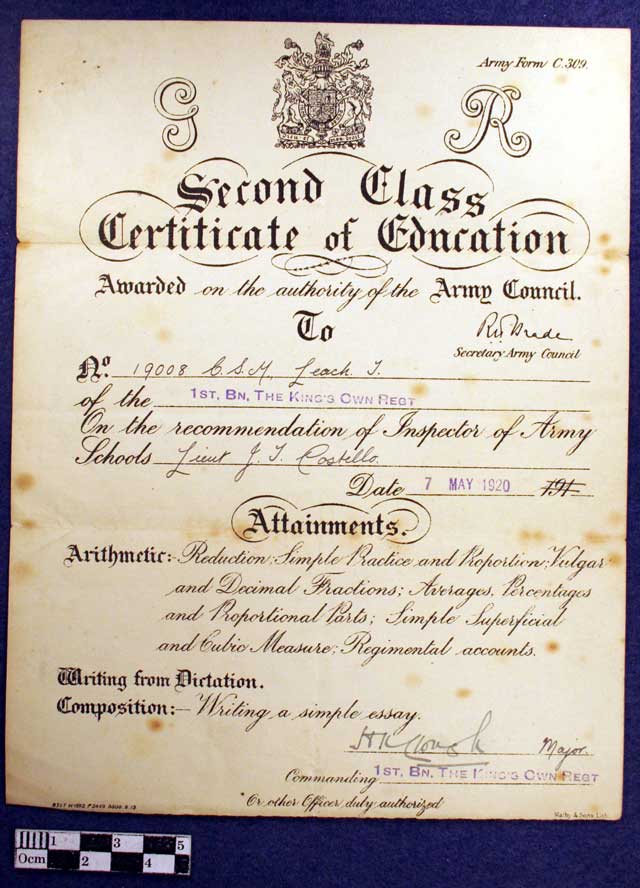 Army Form C.309.
G R
Second Class
Certificate of Education
Awarded on the authority of the Army Council.
To
Secretary Army Council
No. 19008 C.S.M. Leach. J.
of the 1ST, BN, THE KING'S OWN REGT
On the recommendation of Inspector of Army
Schools Lieut J. J. Costillo.
Date 7 MAY 1920 191
Attainments.
Arithmetic:- Reduction; Simple Practice and Proportion; Vulgar
and Decimal Fractions; Averages, Percentages
and Proportional Parts; Simple Superficial
and Cubic Measure; Regimental accounts.
Writing from Dictation.
Composition:- Writing a simple essay.
Major.
Commanding 1ST, BN, THE KING'S OWN REGT
*Or other Officer duly authorized
Malby & Sons. Lith.
0cm 1 2 3 4 5